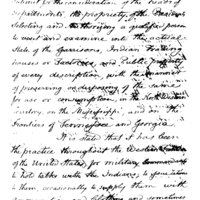 Submit for the consideration of the heads of
Departments, the propriety of the President
selecting and authorising a proper person
to visit and examine into the actual
State of the Garrisons, Indian Trading
houses or Factories and Public property
of every description, with the manner
of preserving and disposing of the same
for use or consumption, in the
Territory, on the Mississippi, and the
Frontiers of Tennessee and Georgia.
It is stated that it has been
the practice throughout the Western
of the United States, for military
to hold talks with the Indians, to
to them, occasionally to supply them with
and Clothing and sometimes